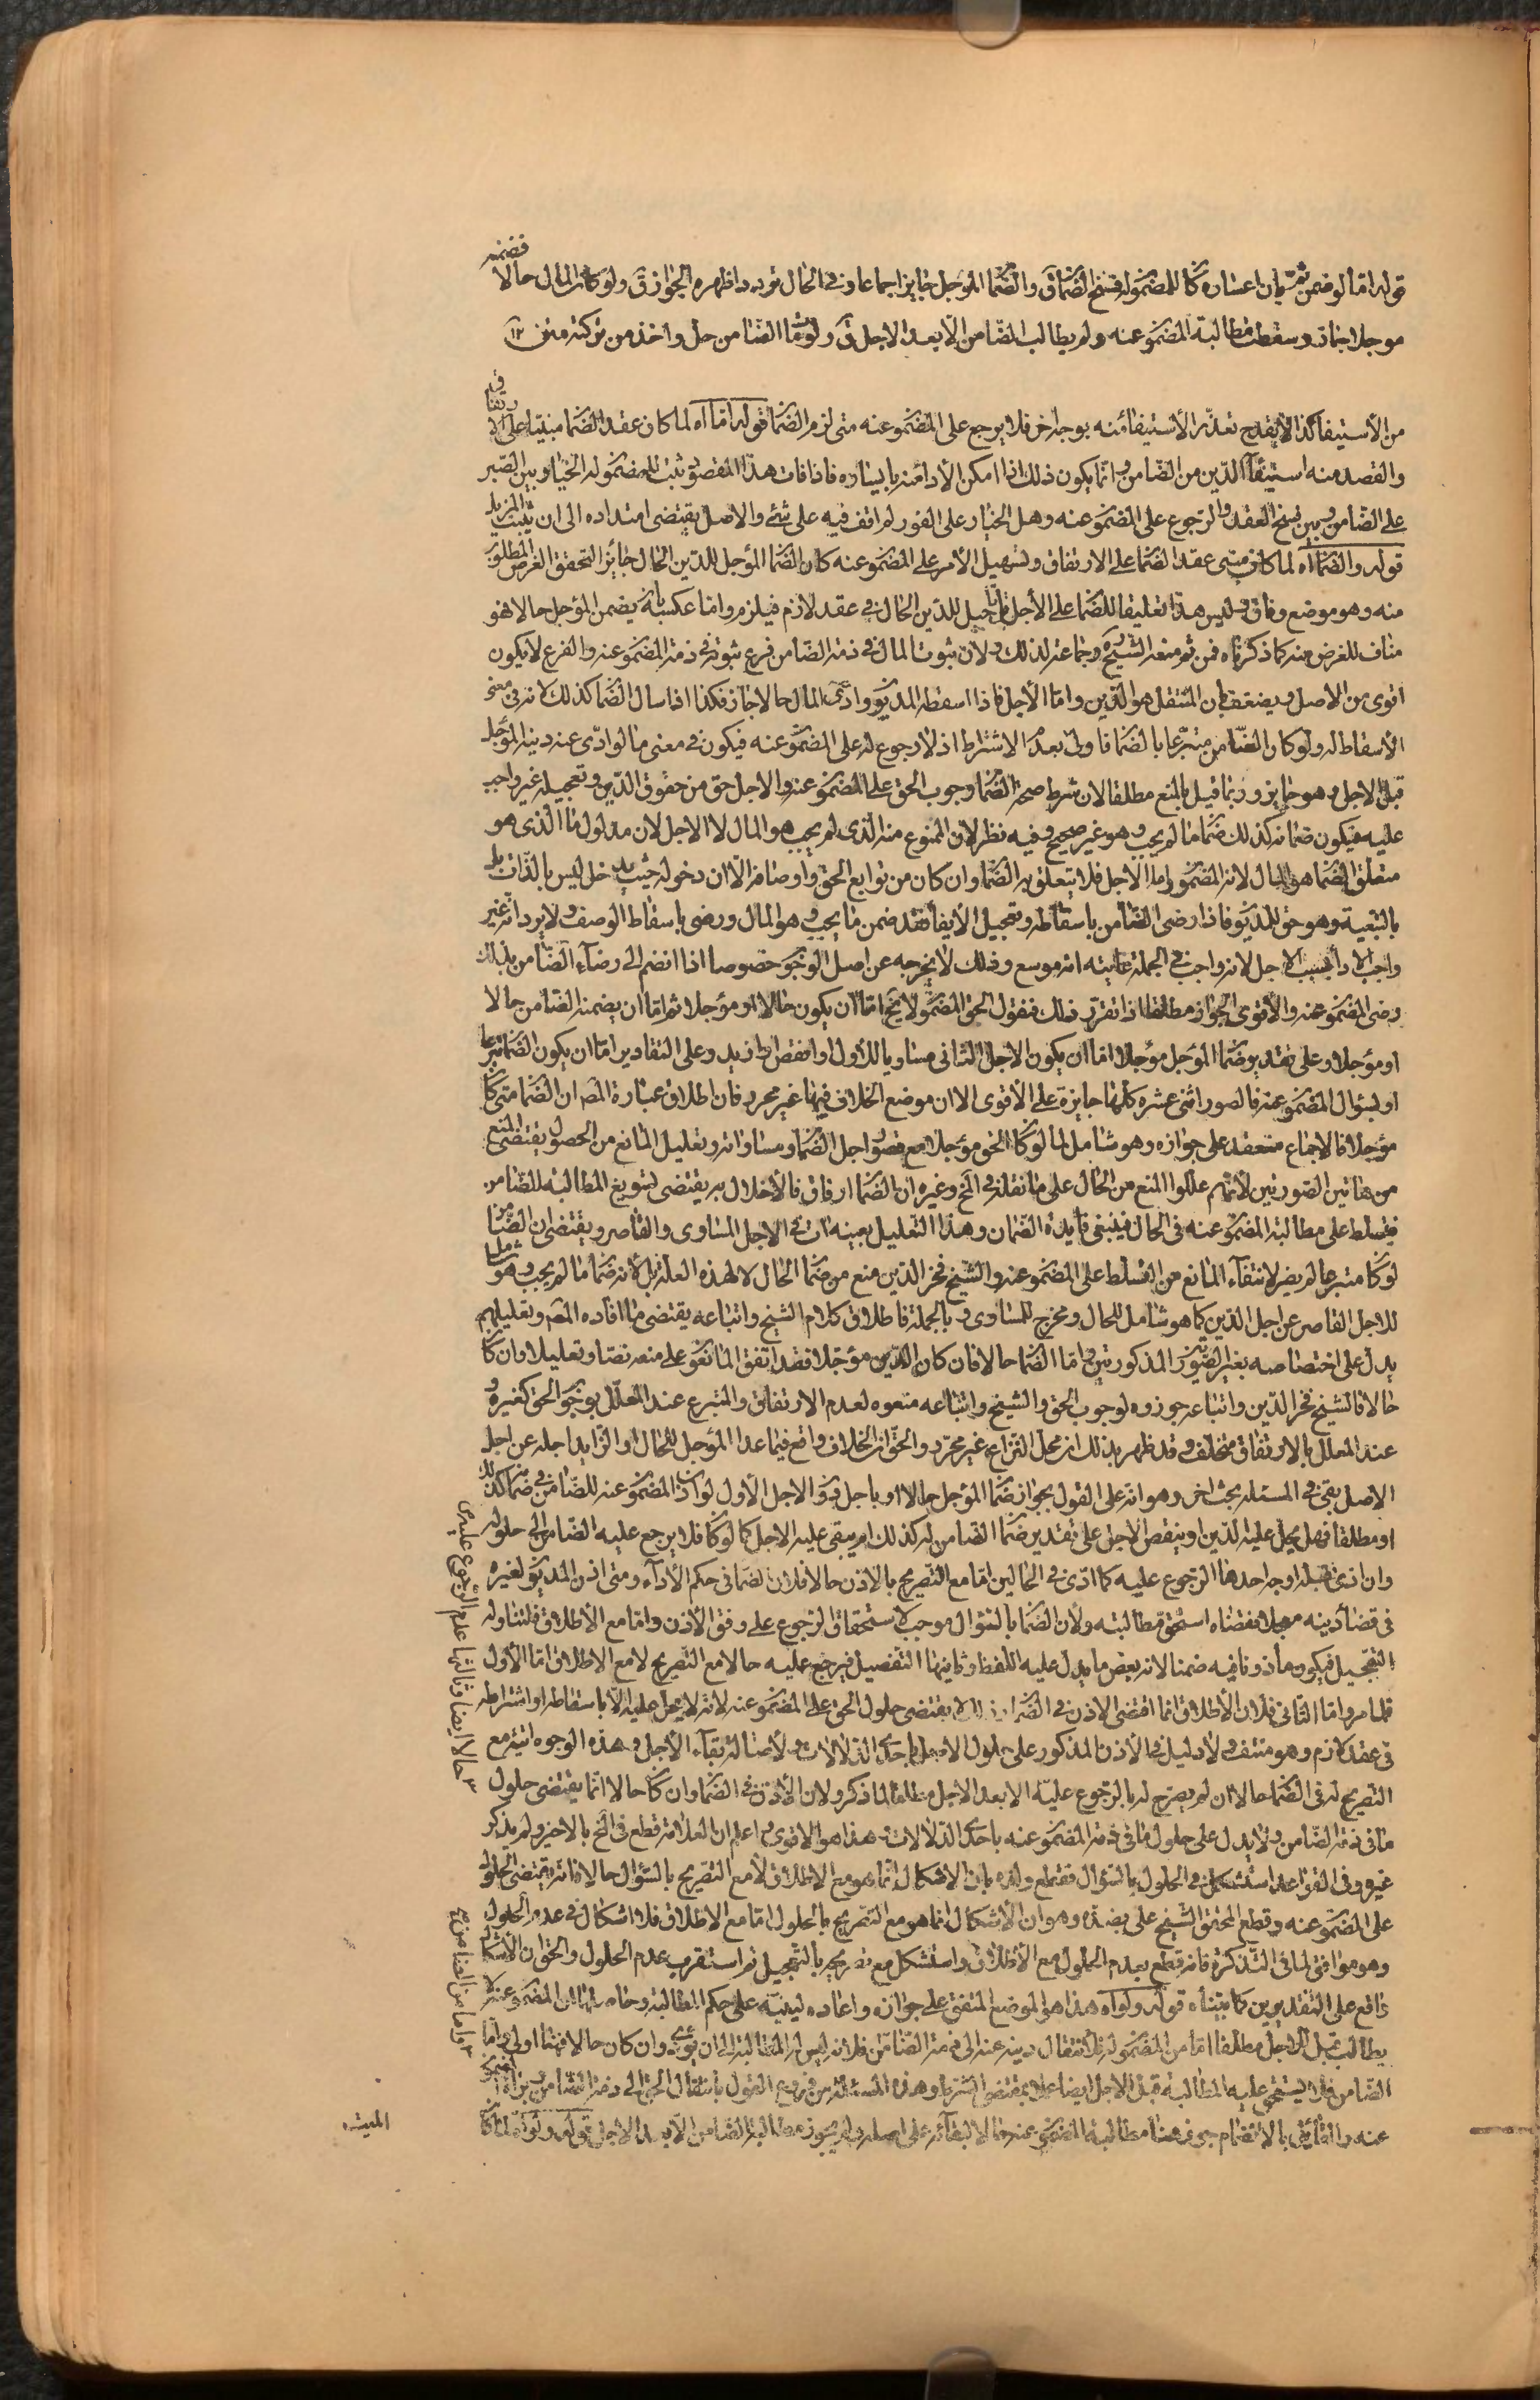 قوله اما لو ضمن ثم بان اعساره كان للمضمون له فسخ الضمان ق والضمان المؤجل جايز اجماعا وفي الحال تردد اظهره الجواز ق ولو كان المال حالا فضمنه
موجلا جاز وسقطت مطالبة المضمون عنه ولم يطالب الضامن الا بعد الاجل ق ولو مات الضامن حل واخذ من تركته متن ١٢
من الأستيفا كذا لا يقدح تعذر الأستيفا منه بوجه اخر فلا يرجع على المضمون عنه متى لزم الضمان قوله اما اه لما كان عقد الضمان مبنيا على الارتفاق
والقصد منه استيفاء الدين من الضامن وانما يكون ذلك اذا امكن الأداء منه بايساره فاذا فات هذا المقصود ثبت للمضمون له الخيار بين الصبر
على الضامن وبين فسخ العقد والرجوع على المضمون عنه وهل الخيار على الفور لم اقف فيه على شئ والاصل يقتضى امتداده الى ان يثبت المزيل
قوله والضمان اه لما كان مبنى عقد الضمان على الارتفاق وتسهيل الأمر على المضمون عنه كان الضمان المؤجل للدين الحال جائزا لتحقق الغرض المطلوب
منه وهو موضع وفاق وليس هذا تعليقا للضمان على الأجل بل تأجيل للدين الحال في عقد لازم فيلزم واما عكسه بان يضمن المؤجل حالا فهو
مناف للغرض منه كما ذكرناه فمن ثم منعه الشيخ وجماعة لذلك ولان ثبوت المال في ذمة الضامن فرع ثبوته في ذمة المضمون عنه والفرع لا يكون
اقوى من الاصل ويضعف بان المنتقل هو الدين واما الأجل فاذا اسقطه المديون وادى المال حالا جاز فكذا اذا سال الضمان كذلك لانه في معنى
الأسقاط له ولو كان الضامن متبرعا بالضمان فاولى بعدم الاشتراط اذ لا رجوع له على المضمون عنه فيكون في معنى ما لو ادى عنه دينه المؤجل
قبل الاجل وهو جايز وربما قيل بالمنع مطلقا لان شرط صحة الضمان وجوب الحق على المضمون عنه والاجل حق من حقوق الدين وتعجيله غير واجب
عليه فيكون ضمانه كذلك ضمان ما لم يجب وهو غير صحيح وفيه نظر لان الممنوع منه الذى لم يجب هو المال لا الاجل لان مدلول ما الذى هو
متعلق الضمان هو المال لانه المضمون واما الاجل فلا يتعلق به الضمان وان كان من توابع الحق واوصافه الا ان دخوله حيث يدخل ليس بالذات بل
بالتبعية وهو حق للمديون فاذا رضى الضامن باسقاطه وتعجيل الأيفاء فقد ضمن ما يجب وهو المال ورضى باسقاط الوصف ولا يرد انه غير
واجب الاداء بسبب الاجل لانه واجب في الجملة غايته انه موسع وذلك لا يخرجه عن اصل الوجوب خصوصا اذا انضم الى رضاء الضامن بذلك
رضى المضمون عنه والأقوى الجواز مطلقا اذا تقرر ذلك فنقول الحق المضمون لا يخ اما ان يكون حالا او مؤجلا ثم اما ان يضمنه الضامن حالا
او مؤجلا وعلى تقدير ضمان المؤجل مؤجلا اما ان يكون الاجل الثانى مساويا للأول او انقص او ازيد وعلى التقادير اما ان يكون الضمان تبرعا
او بسؤال المضمون عنه فالصور اثنى عشرة كلها جايزة على الأقوى الا ان موضع الخلاف فيها غير محرر فان اطلاق عبارة المصـ ان الضمان متى كان
مؤجلا فالاجماع منعقد على جوازه وهو شامل لما لو كان الحق مؤجلا مع قصور اجل الضمان ومساواته وتعليل المانع من الحصول يقتضى المنع
من هاتين الصورتين لأنهم عللوا المنع من الحال على ما نقله في الخ وغيره ان الضمان ارفاق فالأخلال به يقتضى تسويغ المطالبة للضامن
فيتسلط على مطالبة المضمون عنه في الحال فينتفى فايدة الضمان وهذا التعليل بعينه ات في الاجل المساوى والقاصر ويقتضى ان الضامن
لو كان متبرعا لم يضر لانتفاء المانع من التسلط على المضمون عنه والشيخ فخر الدين منع من ضمان الحال لا لهذه العلة بل لانه ضمان ما لم يجب وهو شامل
للاجل القاصر عن اجل الدين كما هو شامل للحال ومخرج للمساوى وبالجملة فاطلاق كلام الشيخ واتباعه يقتضى ما افاده المصـ وتعليلهم
يدل على اختصاصه بغير الصورتين المذكورتين واما الضمان حالا فان كان الدين مؤجلا فقد اتفق المانعون على منعه نصا وتعليلا وان كان
حالا فالشيخ فخر الدين واتباعه جوزوه لوجوب الحق والشيخ واتباعه منعوه لعدم الارتفاق والمتبرع عند المعلل بوجوب الحق كغيره و
عند المعلل بالارتفاق مختلف وقد ظهر بذلك ان محل النزاع غير محرر والحق ان الخلاف واقع فيما عدا المؤجل للحال او الزايد اجله عن اجل
الاصل بقى في المسئلة بحث اخر وهو انه على القول بجواز ضمان المؤجل حالا او باجل دون الاجل الأول لو اذن المضمون عنه للضامن في ضمانه كذلك
او مطلقا فهل يحل عليه الدين او ينقص الاجل على تقدير ضمان الضامن له كذلك ام يبقى عليه الاجل كما لو كان فلا يرجع عليه الضامن الى حلوله
وان ادى قبله اوجه احدها الرجوع عليه كما ادى في الحالين اما مع التصريح بالاذن حالا فلان الضمان في حكم الأداء ومتى اذن المديون لغيره
في قضاء دينه معجلا فقضاه استحق مطالبته ولأن الضمان بالسؤال موجب لاستحقاق الرجوع على وفق الأذن واما مع الأطلاق فلتناوله
التعجيل فيكون مأذونا فيه ضمنا لانه بعض ما يدل عليه اللفظ وثانيها التفصيل فيرجع عليه حالا مع التصريح لا مع الاطلاق اما الأول
فلما مر واما الثانى فلان الأطلاق انما اقتضى الاذن في الضمان وذلك لا يقتضى حلول الحق على المضمون عنه لانه لا يحل عليه الا باسقاطه او اشتراطه
في عقد لازم وهو منتف ولا دليل في الأذن المذكور على حلول الاجل باحدى الدلالات ولأصالة بقاء الأجل وهذه الوجوه اتية مع
التصريح له في الضمان حالا ان لم يصرح له بالرجوع عليه الا بعد الاجل مطلقا لما ذكر ولان الأذن في الضمان وان كان حالا انما يقتضى حلول
ما في ذمة الضامن ولا يدل على حلول ما في ذمة المضمون عنه باحدى الدلالات وهذا هو الاقوى واعلم ان العلامة قطع في الخ بالاخير ولم يذكر
غيره وفي القواعد استشكل في الحلول بالسؤال فقطع ولده بان الاشكال انما هو مع الاطلاق لا مع التصريح بالسؤال حالا فانه يقتضى الحلول
على المضمون عنه وقطع المحقق الشيخ على بضده وهو ان الأشكال انما هو مع التصريح بالحلول اما مع الاطلاق فلا اشكال في عدم الحلول
وهو موافق لما في التذكرة فانه قطع بعدم الحلول مع الأطلاق واستشكل مع تصريحه بالتعجيل ثم استقرب عدم الحلول والحق ان الأشكال
واقع على التقديرين كما بيناه قوله ولو اه هذا هو الموضع المتفق على جوازه واعاده لينبه على حكم المطالبة وحاصلها ان المضمون عنه لا
يطالب قبل الاجل مطلقا اما من المضمون له فلانتقال دينه عنه الى ذمة الضامن فلانه ليس له المطالبة الى ان يؤدى وان كان حالا فهنا اولى واما
الضامن فلا يستحق عليه المطالبة قبل الاجل ايضا عملا بمقتضى الشرط وهذه المسئلة من فروع القول بانتقال الحق الى ذمة الضامن وبراءة المضمون
عنه والقائل بالانضمام جوز هنا مطالبة المضمون عنه حالا لبقائه على اصله ولم يجوز مطالبة الضامن الا بعد الاجل قوله ولو اه لما كان
الميت
٣ حالا ايضا وثالثها عدم الرجوع عليه
٣ واما من الضامن